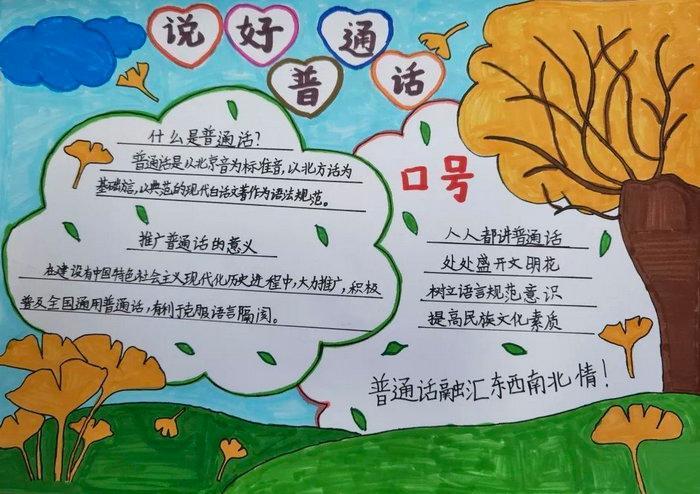 说好普通话
什么是普通话?
普通话是以北京音为标准音,以北方话为
基础方言,以典范的现代白话文著作为语法规范。
推广普通话的意义
在建设有中国特色社会主义现代化历史进程中,大力推广,积极
普及全国通用普通话,有利于克服语言隔阂。
口号
人人都讲普通话
处处盛开文明花
树立语言规范意识
提高民族文化素质
普通话融汇东西南北情!